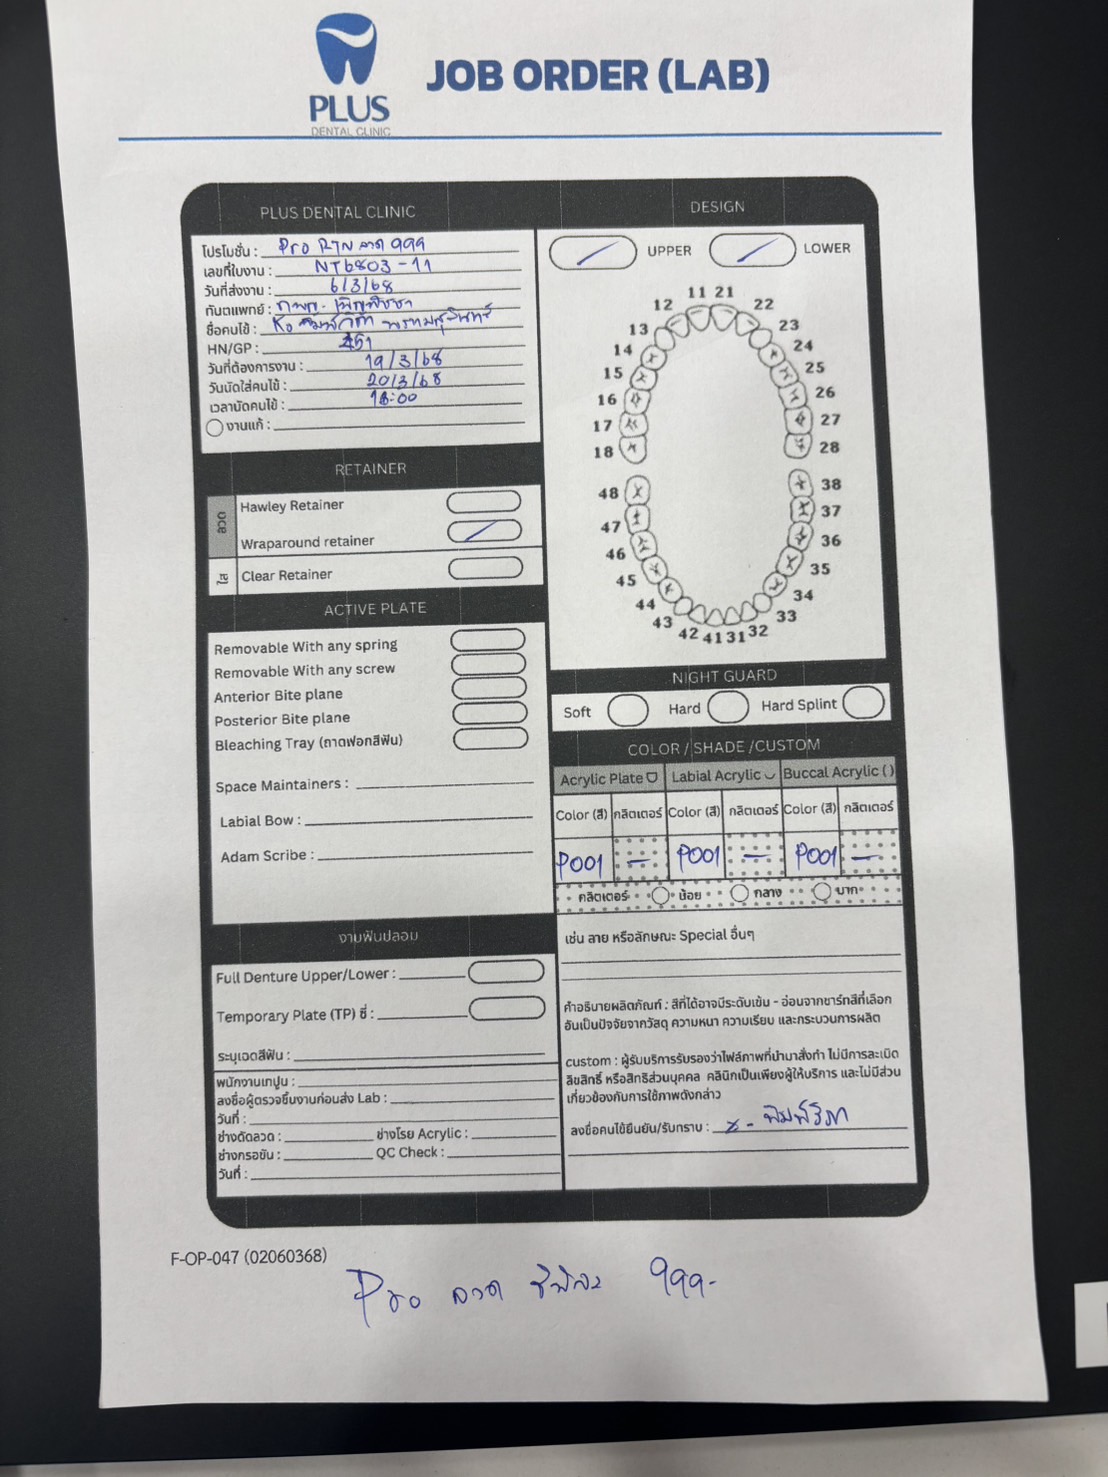 PLUS
DENTAL CLINIC
JOB ORDER (LAB)
PLUS DENTAL CLINIC
โปรโมชั่น : Pro RTN ลวด 999
เลขที่ใบงาน : NT6803-11
วันที่ส่งงาน : 6/3/68
ทันตแพทย์ : ทพญ. เพ็ญพิชชา
ชื่อคนไข้ :
HN/GP : 451
วันที่ต้องการงาน : 19/3/68
วันนัดใส่คนไข้ : 20/3/68
เวลานัดคนไข้ : 18:00
งานแก้ :
RETAINER
ลวด
Hawley Retainer
Wraparound retainer
ใส
Clear Retainer
ACTIVE PLATE
Removable With any spring
Removable With any screw
Anterior Bite plane
Posterior Bite plane
Bleaching Tray (ถาดฟอกสีฟัน)
Space Maintainers :
Labial Bow :
Adam Scribe :
งานฟันปลอม
Full Denture Upper/Lower :
Temporary Plate (TP) ซี่ :
ระบุเฉดสีฟัน :
พนักงานเทปูน :
ลงชื่อผู้ตรวจชิ้นงานก่อนส่ง Lab :
วันที่ :
ช่างดัดลวด : ช่างโรย Acrylic :
ช่างกรอขัน : QC Check :
วันที่ :
DESIGN
UPPER LOWER
11 21
12 22
13 23
14 24
15 25
16 26
17 27
18 28
48 38
47 37
46 36
45 35
44 34
43 33
42 41 31 32
NIGHT GUARD
Soft Hard Hard Splint
COLOR / SHADE /CUSTOM
Acrylic Plate Labial Acrylic Buccal Acrylic ( )
Color (สี) กลิตเตอร์ Color (สี) กลิตเตอร์ Color (สี) กลิตเตอร์
P001 - P001 - P001 -
กลิตเตอร์ น้อย กลาง มาก
เช่น ลาย หรือลักษณะ Special อื่นๆ
คำอธิบายผลิตภัณฑ์ : สีที่ได้อาจมีระดับเข้ม - อ่อนจากชาร์ทสีที่เลือก
อันเป็นปัจจัยจากวัสดุ ความหนา ความเรียบ และกระบวนการผลิต
custom : ผู้รับบริการรับรองว่าไฟล์ภาพที่นำมาสั่งทำ ไม่มีการละเมิด
ลิขสิทธิ์ หรือสิทธิส่วนบุคคล คลินิกเป็นเพียงผู้ให้บริการ และไม่มีส่วน
เกี่ยวข้องกับการใช้ภาพดังกล่าว
ลงชื่อคนไข้ยืนยัน/รับทราบ :
F-OP-047 (02060368)
Pro ลวด ชิ้นละ 999-